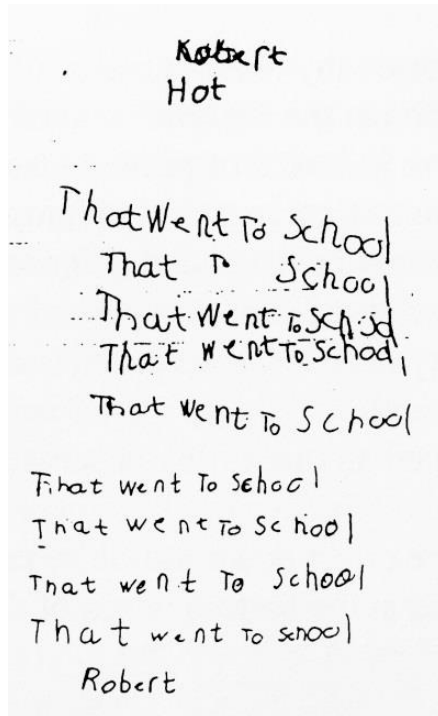 Robert
Hot
That Went To School
That To School
That Went To School
That Went To School
That Went To School
That went To School
That went To School
That went To School
That went To School
Robert